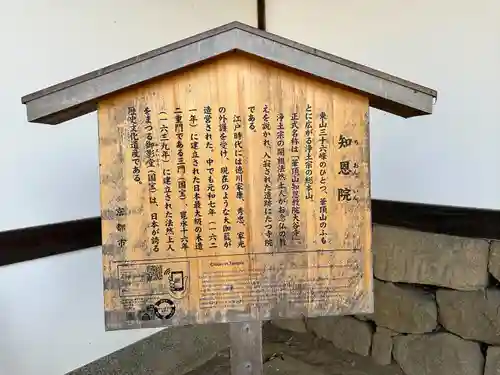 知恩院
ちおんいん
東山三十六峰のひとつ、華頂山のふも
とに広がる浄土宗の総本山。
正式名称は「華頂山知恩教院大谷寺」。
浄土宗の開祖法然上人がお念仏の教
えを説かれ、入寂された遺跡にたつ寺院
である。
江戸時代には徳川家康、秀忠、家光
の外護を受け、現在のような大伽藍が
造営された。中でも元和七年(一六二
一年)に建立された日本最大級の木造
二重門である三門(国宝)、寛永十六年
(一六三九年)に建立された法然上人
をまつる御影堂(国宝)は、日本が誇る
歴史文化遺産である。
京都市
Chion-in Temple